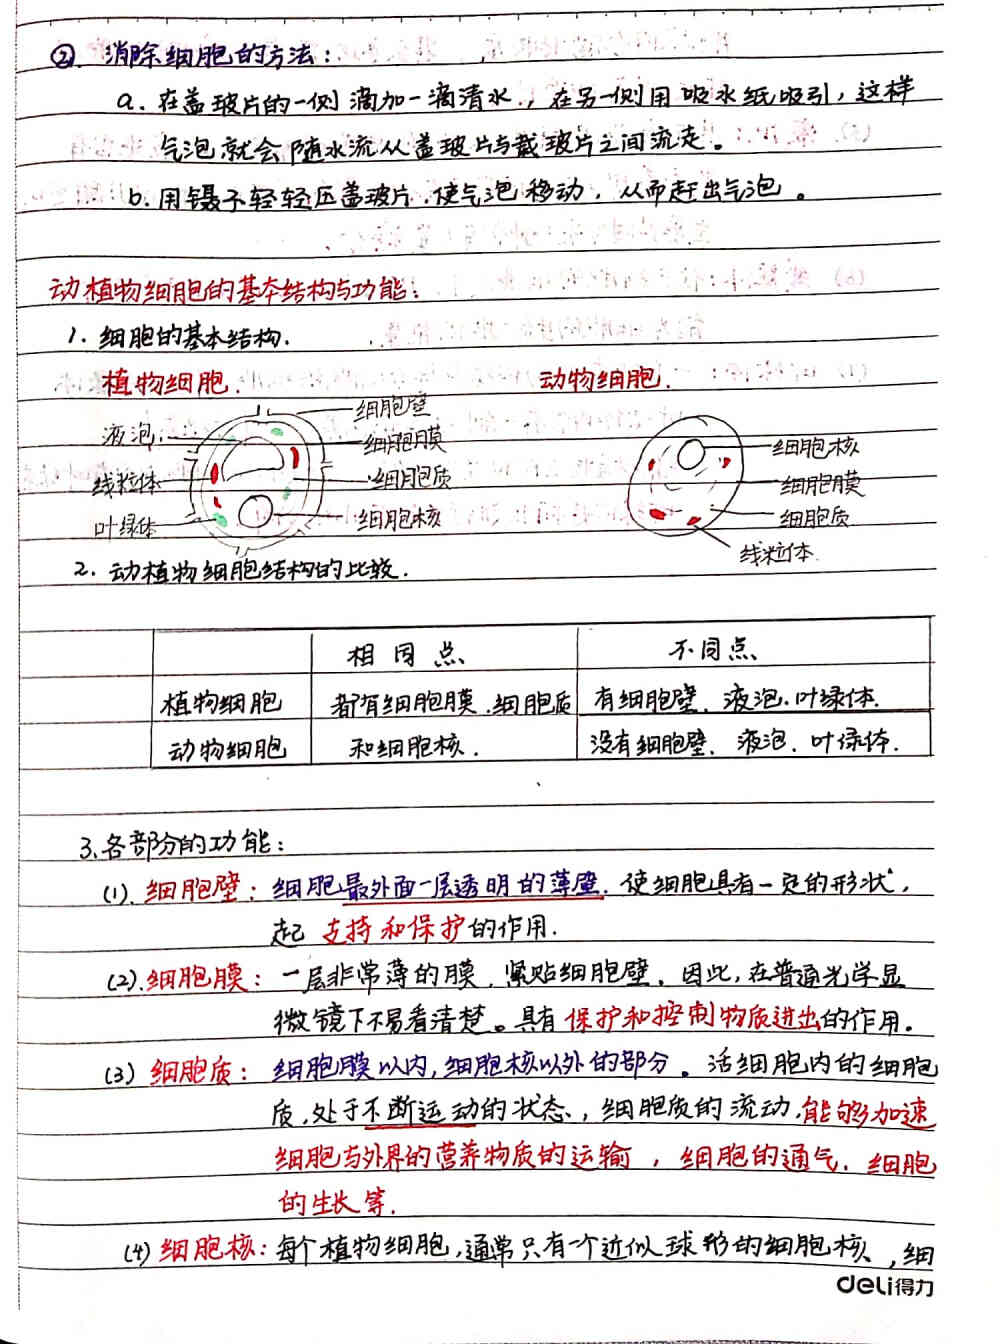 ②. 消除细胞的方法：
a. 在盖玻片的一侧滴加一滴清水，在另一侧用吸水纸吸引，这样
气泡就会随水流从盖玻片与载玻片之间流走。
b. 用镊子轻轻压盖玻片，使气泡移动，从而赶出气泡。
动植物细胞的基本结构与功能：
1. 细胞的基本结构.
植物细胞. 动物细胞.
液泡
线粒体
叶绿体
细胞壁
细胞膜
细胞质
细胞核
细胞核
细胞膜
细胞质
线粒体
2. 动植物细胞结构的比较.
相同点 不同点
植物细胞 都有细胞膜.细胞质 有细胞壁、液泡.叶绿体.
动物细胞 和细胞核. 没有细胞壁、液泡、叶绿体.
3.各部分的功能：
(1). 细胞壁：细胞最外面一层透明的薄壁.使细胞具有一定的形状，
起 支持和保护的作用.
(2).细胞膜：一层非常薄的膜，紧贴细胞壁，因此，在普通光学显
微镜下不易看清楚。具有保护和控制物质进出的作用。
(3) 细胞质：细胞膜以内，细胞核以外的部分。活细胞内的细胞
质，处于不断运动的状态，细胞质的流动，能够加速
细胞与外界的营养物质的运输，细胞的通气、细胞
的生长等.
(4) 细胞核：每个植物细胞，通常只有一个近似球形的细胞核，细
deli得力